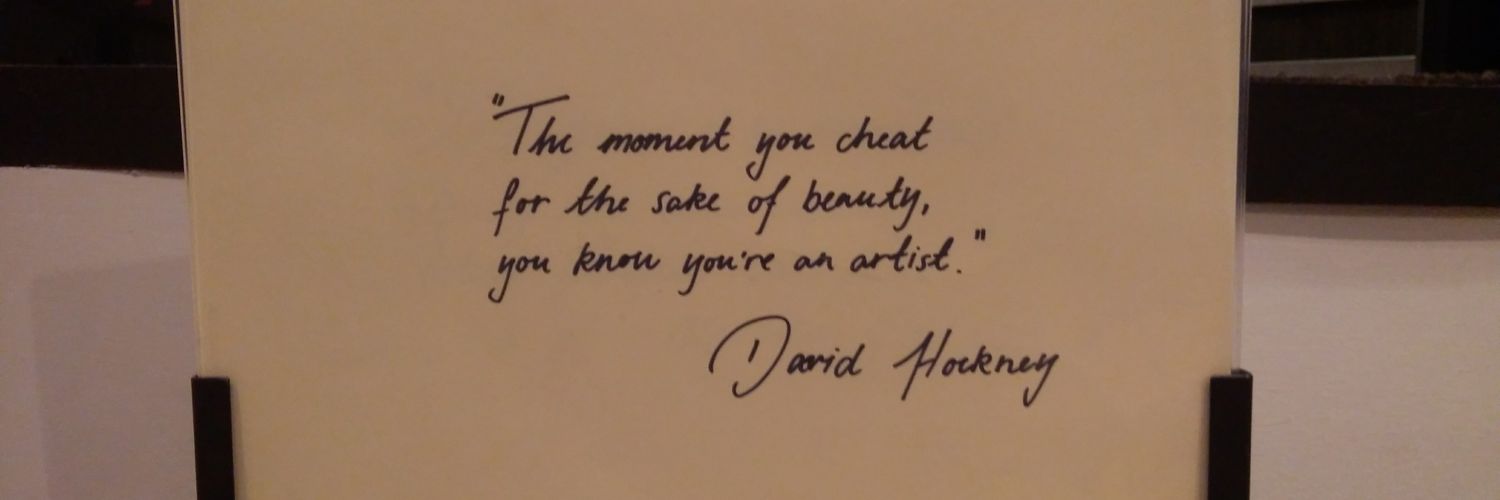 "The moment you cheat
for the sake of beauty,
you know you're an artist."
David Hockney